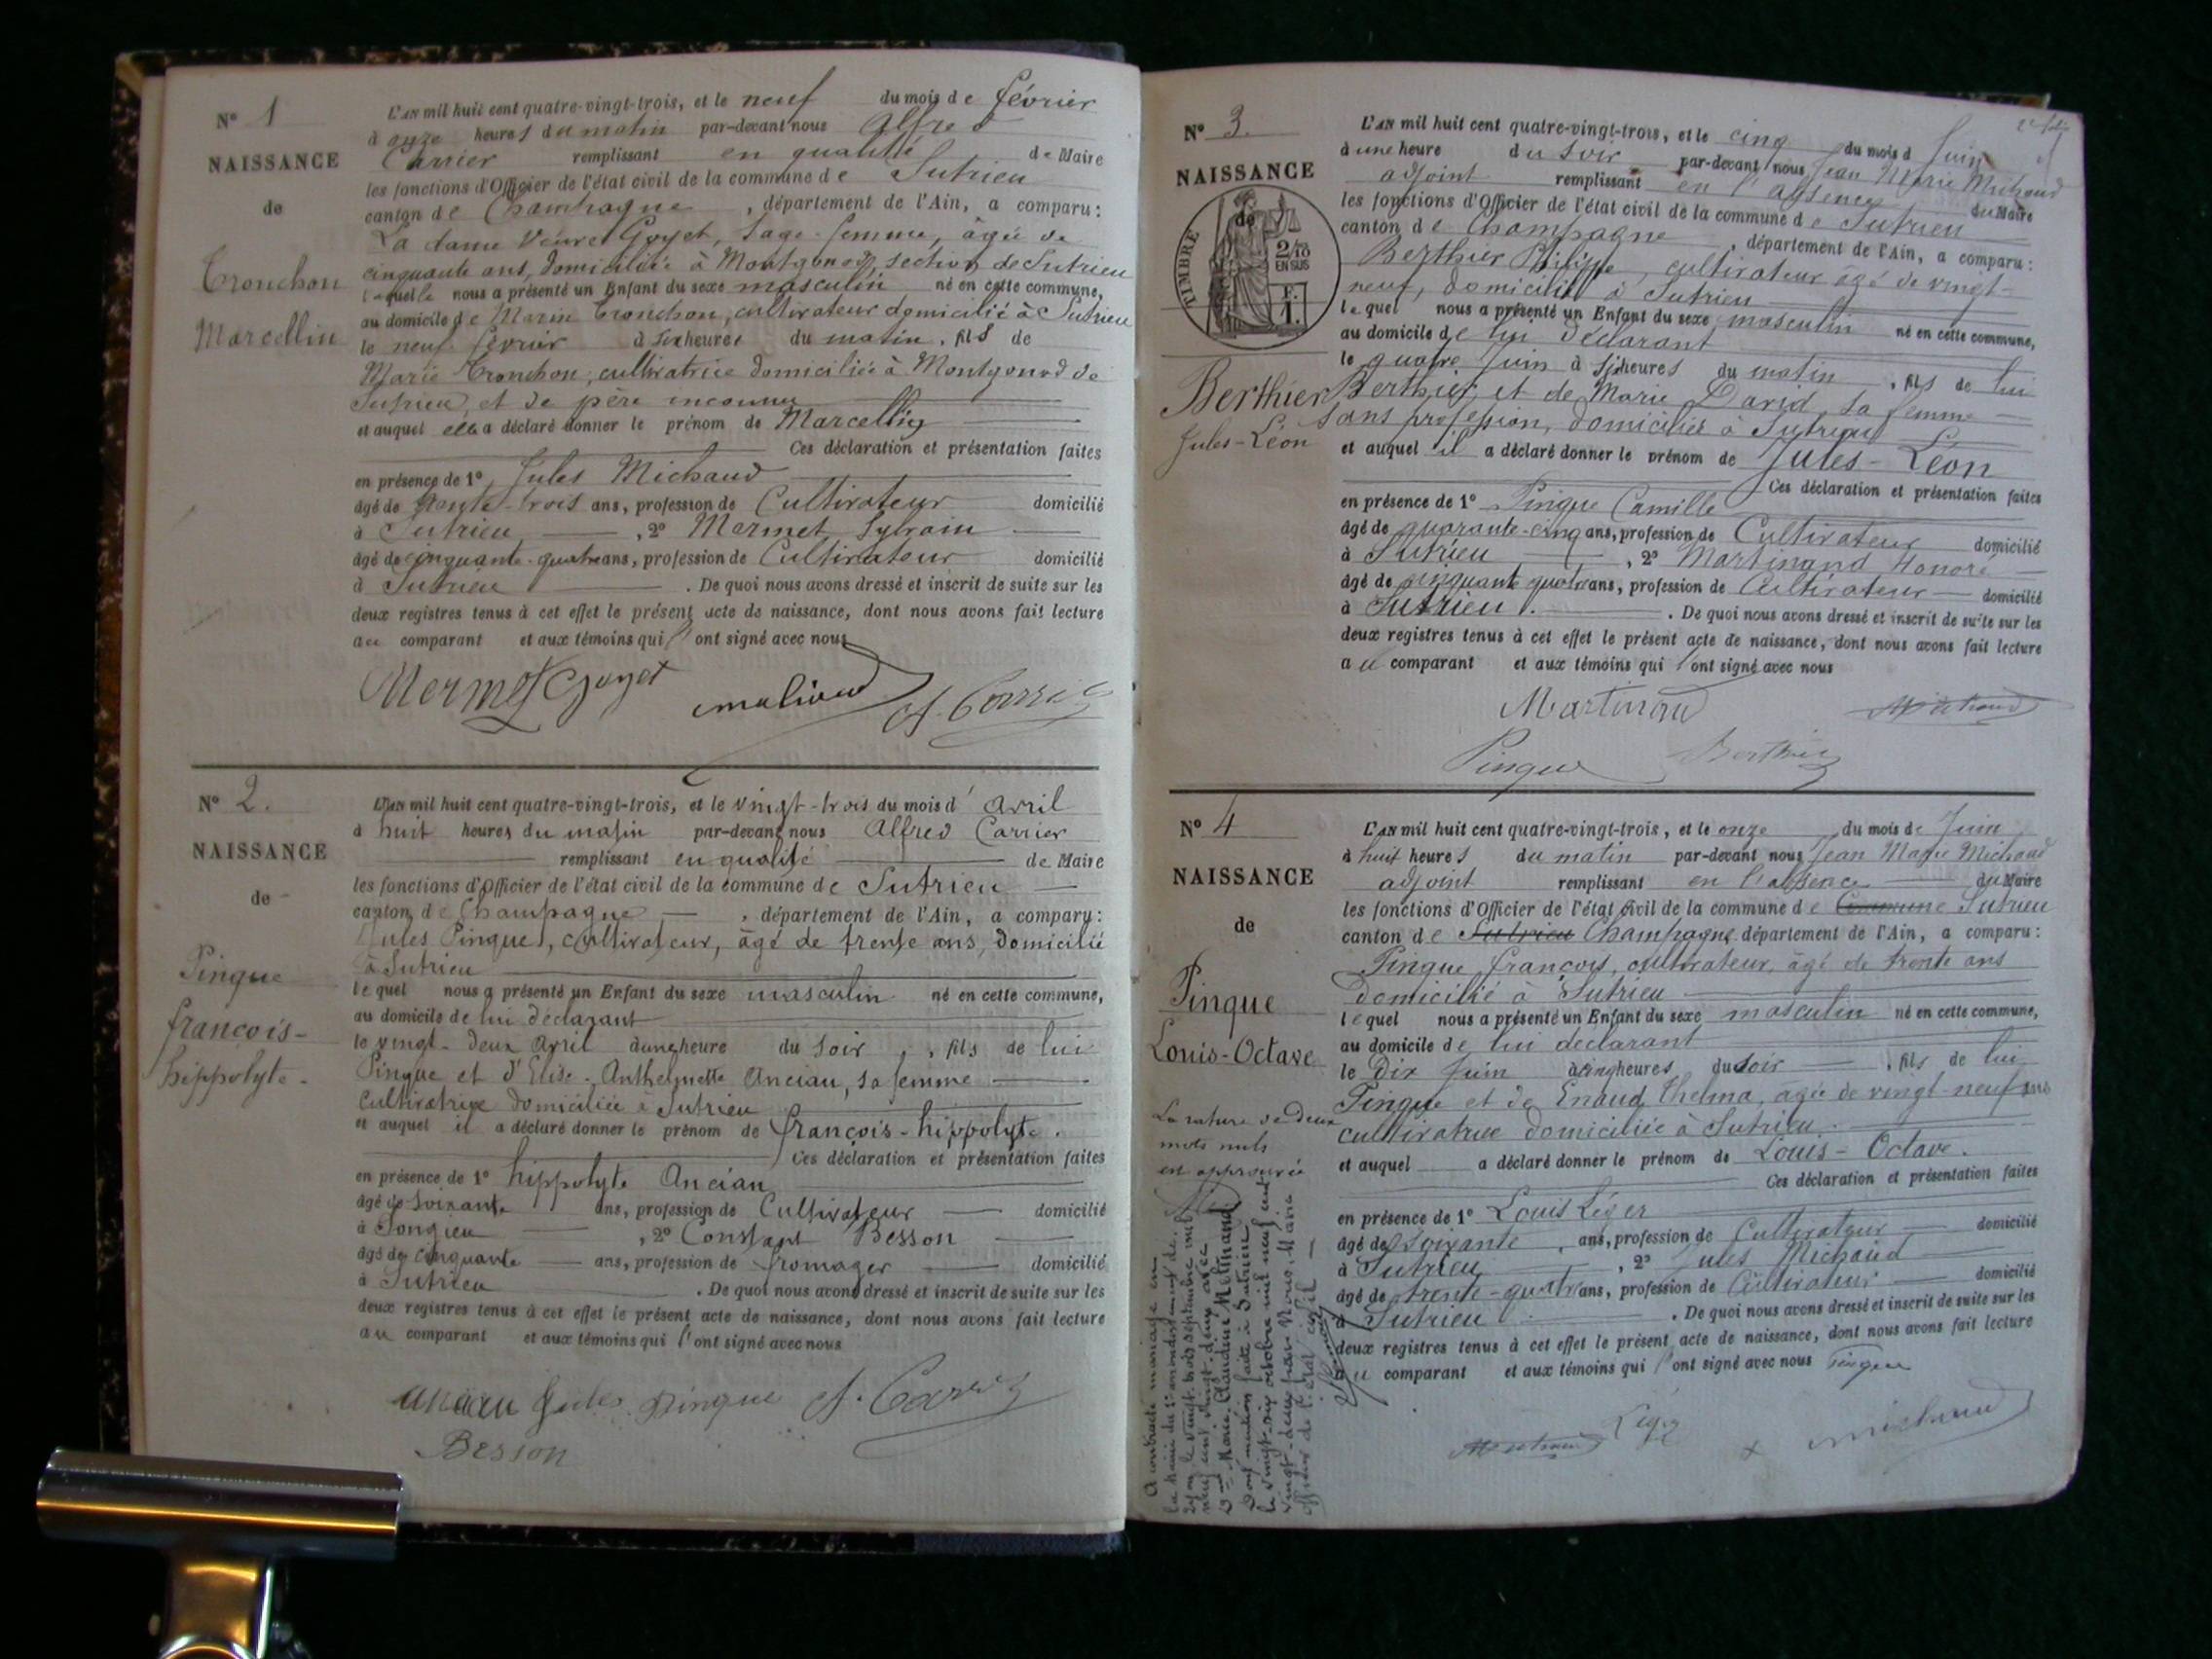 N° 1
NAISSANCE
de
Tronchon
Marcellin
L'AN mil huit cent quatre-vingt-trois, et le neuf du mois de février
à onze heures du matin par-devant nous Alfred
Carrier remplissant en qualité de Maire
les fonctions d'Officier de l'état civil de la commune de Sutrieu
canton de Champagne, département de l'Ain, a comparu:
La dame veuve Goyet, sage-femme, âgée de
cinquante ans, domiciliée à Montgonod, section de Sutrieu
laquelle nous a présenté un Enfant du sexe masculin né en cette commune,
au domicile de Marie Tronchon, cultivateur domicilié à Sutrieu
le neuf février à heures du matin, fils de
Marie Tronchon, cultivatrice domiciliée à Montgonod de
Sutrieu, et de père inconnu
et auquel elle a déclaré donner le prénom de Marcellin
Ces déclaration et présentation faites
en présence de 1° Jules Michaud
âgé de trente-trois ans, profession de Cultivateur domicilié
à Sutrieu, 2° Mermet Sylvain
âgé de cinquante-quatre ans, profession de Cultivateur domicilié
à Sutrieu. De quoi nous avons dressé et inscrit de suite sur les
deux registres tenus à cet effet le présent acte de naissance, dont nous avons fait lecture
au comparant et aux témoins qui l'ont signé avec nous
Mermet Goyet michaud A. Carrier
N° 2.
NAISSANCE
de
Pinque
françois-
hippolyte.
L'AN mil huit cent quatre-vingt-trois, et le vingt-trois du mois d'avril
à huit heures du matin par-devant nous Alfred Carrier
remplissant en qualité de Maire
les fonctions d'Officier de l'état civil de la commune de Sutrieu
canton de Champagne, département de l'Ain, a comparu:
Jules Pinque, cultivateur, âgé de trente ans, domicilié
à Sutrieu
lequel nous a présenté un Enfant du sexe masculin né en cette commune,
au domicile de lui déclarant
le vingt-deux avril à une heure du soir, fils de lui
Pinque et d'Elise-Anthelmette Anciau, sa femme
Cultivatrice domiciliée à Sutrieu
et auquel il a déclaré donner le prénom de françois-hippolyte.
Ces déclaration et présentation faites
en présence de 1° hippolyte Ancian
âgé de soixante ans, profession de Cultivateur domicilié
à Songieu, 2° Constant Besson
âgé de cinquante ans, profession de fromager domicilié
à Sutrieu. De quoi nous avons dressé et inscrit de suite sur les
deux registres tenus à cet effet le présent acte de naissance, dont nous avons fait lecture
au comparant et aux témoins qui l'ont signé avec nous
Jules Pinque A. Carrier
Besson
N° 3.
NAISSANCE
de
TIMBRE
2/10
EN SUS
F.
1.
Berthier
Jules-Léon
L'AN mil huit cent quatre-vingt-trois, et le cinq du mois d Juin
à une heure du soir par-devant nous Jean Marie Michaud
adjoint remplissant en l'absence du Maire
les fonctions d'Officier de l'état civil de la commune de Sutrieu
canton de Champagne, département de l'Ain, a comparu:
Berthier Philippe, cultivateur âgé de vingt-
neuf, domicilié à Sutrieu
lequel nous a présenté un Enfant du sexe masculin né en cette commune,
au domicile de lui déclarant
le quatre Juin à six heures du matin, fils de lui
Berthier et de Marie David, sa femme
sans profession, domiciliés à Sutrieu
et auquel il a déclaré donner le prénom de Jules-Léon
Ces déclaration et présentation faites
en présence de 1° Pinque Camille
âgé de quarante-cinq ans, profession de Cultivateur domicilié
à Sutrieu, 2° Martinand Honoré
âgé de cinquante quatre ans, profession de Cultivateur domicilié
à Sutrieu. De quoi nous avons dressé et inscrit de suite sur les
deux registres tenus à cet effet le présent acte de naissance, dont nous avons fait lecture
au comparant et aux témoins qui l'ont signé avec nous
Martinand Michaud
Pinque Berthier
N° 4
NAISSANCE
de
Pinque
Louis-Octave
La rature de deux
mots nuls
est approuvée
A contracté mariage en
la mairie du 1er arrondissement de
Lyon le vingt-trois septembre mil
neuf cent vingt-deux avec
Marie Claudine Mélinand
Dont mention faite à Sutrieu
le vingt-six octobre mil neuf cent
vingt-deux par Nous, Maire
officier de l'état civil
L'AN mil huit cent quatre-vingt-trois, et le onze du mois de Juin
à huit heures du matin par-devant nous Jean Marie Michaud
adjoint remplissant en l'absence du Maire
les fonctions d'Officier de l'état civil de la commune de Commune Sutrieu
canton de Sutrieu Champagne, département de l'Ain, a comparu:
Pinque françois, cultivateur, âgé de trente ans
domicilié à Sutrieu
lequel nous a présenté un Enfant du sexe masculin né en cette commune,
au domicile de lui déclarant
le Dix Juin à cinq heures du soir, fils de lui
Pinque et de Enaud Thelma, âgée de vingt-neuf ans
cultivatrice domiciliée à Sutrieu.
et auquel a déclaré donner le prénom de Louis-Octave.
Ces déclaration et présentation faites
en présence de 1° Louis Léger
âgé de soixante ans, profession de Cultivateur domicilié
à Sutrieu, 2° Jules Michaud
âgé de trente-quatre ans, profession de Cultivateur domicilié
à Sutrieu. De quoi nous avons dressé et inscrit de suite sur les
deux registres tenus à cet effet le présent acte de naissance, dont nous avons fait lecture
au comparant et aux témoins qui l'ont signé avec nous Pinque
Léger
Michaud michaud